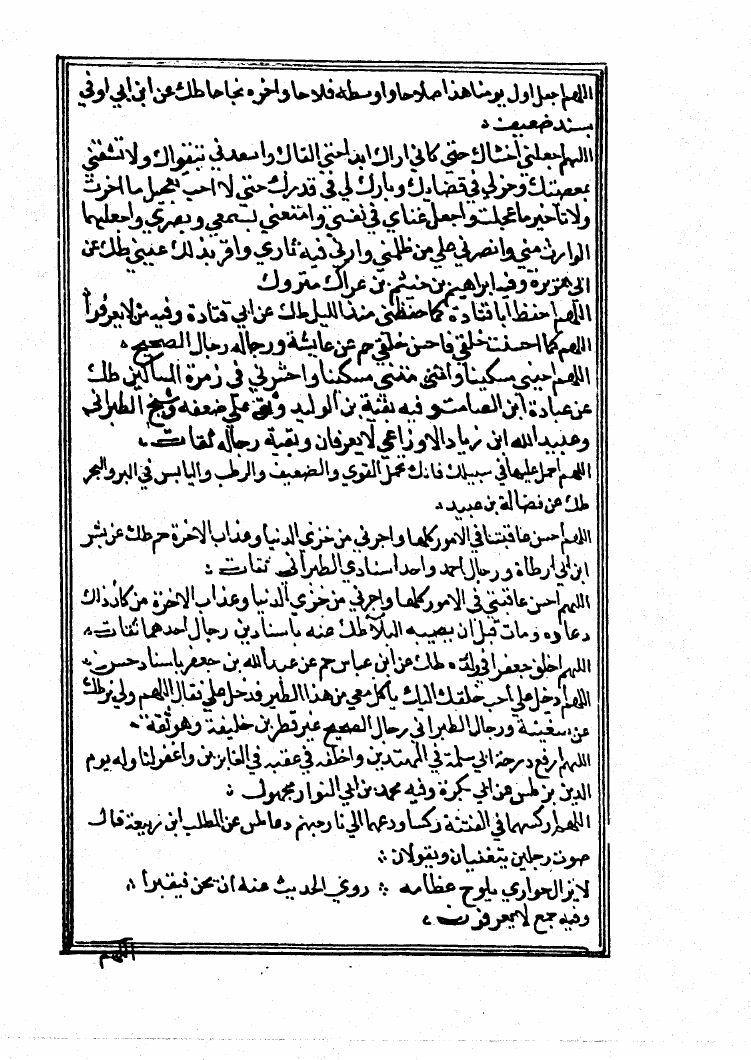 اللهم اجعل اول يومنا هذا صلاحا واوسطه فلاحا واخره نجاحا طك عن ابن ابي اوفي
بسند ضعيف .
اللهم اجعلني اخشاك حتى كاني اراك ابدا حتى القاك واسعدني بتقواك ولا تشقني
بمعصيتك وخر لي في قضائك وبارك لي في قدرك حتى لا احب تعجيل ما اخرت
ولا تاخير ما عجلت واجعل غناي في نفسي وامتعني بسمعي وبصري واجعلهما
الوارث مني وانصرني علي من ظلمني وارني فيه ثاري واقر بذلك عيني طك عن
ابي هريرة وفيه ابراهيم بن خثيم بن عراك متروك
اللهم احفظ ابا قتادة كما حفظني منذ الليل طك عن ابي قتادة وفيه من لا يعرفوا
اللهم كما احسنت خلقي فاحسن خلقي حم عن عايشة ورجاله رجال الصحيح .
اللهم احيني مسكينا وامتني مسكينا واحشرني في زمرة المساكين طك
عن عبادة ابن الصامت وفيه بقية بن الوليد وثق علي ضعفه وشيخ الطبراني
وعبيد الله ابن زياد الاوزاعي لا يعرفان وبقية رجاله ثقات .
اللهم احمل عليها في سبيلك فانك تحمل القوي والضعيف والرطب واليابس في البر والبحر
طك عن فضالة بن عبيد .
اللهم احسن عاقبتنا في الامور كلها واجرني من خزي الدنيا وعذاب الاخرة حم طك عن بشر
ابن ابي ارطاة ورجال احمد واحد اسنادي الطبراني ثقات :
اللهم احسن عاقبتي في الامور كلها واجرني من خزي الدنيا وعذاب الاخرة من كان ذلك
دعاوه ومات قبل ان يصيبه البلا طك عنه باسنادين رجال احدهما ثقات .
اللهم اخلق جعفرا في ولده طك عن ابن عباس حم عن عبد الله بن جعفر باسناد حسن .
اللهم دخل علي احب خلقك اليك ياكل معي من هذا الطير فدخل علي فقال اللهم ولي بز طك
عن سفينة ورجال الطبراني رجال الصحيح غير قطر بن خليفة وهو ثقة .
اللهم ارفع درجة ابي سلمة في المهتدين واخلفه في عقبه في الغابرين واغفر لنا وله يوم
الدين بز طس عن ابي بكرة وفيه محمد بن ابي النوار مجهول :
اللهم اركسهما في الفتنة ركسا ودعهما الي نار جهنم دعا طس عن المطلب ابن ربيعة قال
صوت رجلين يتغنيان ويقولان :
لا يزال حواري يلوح عظامه : روي الحديث عنه ان يجن فيقبرا :
وفيه جمع لا يعرفون .
اللهم